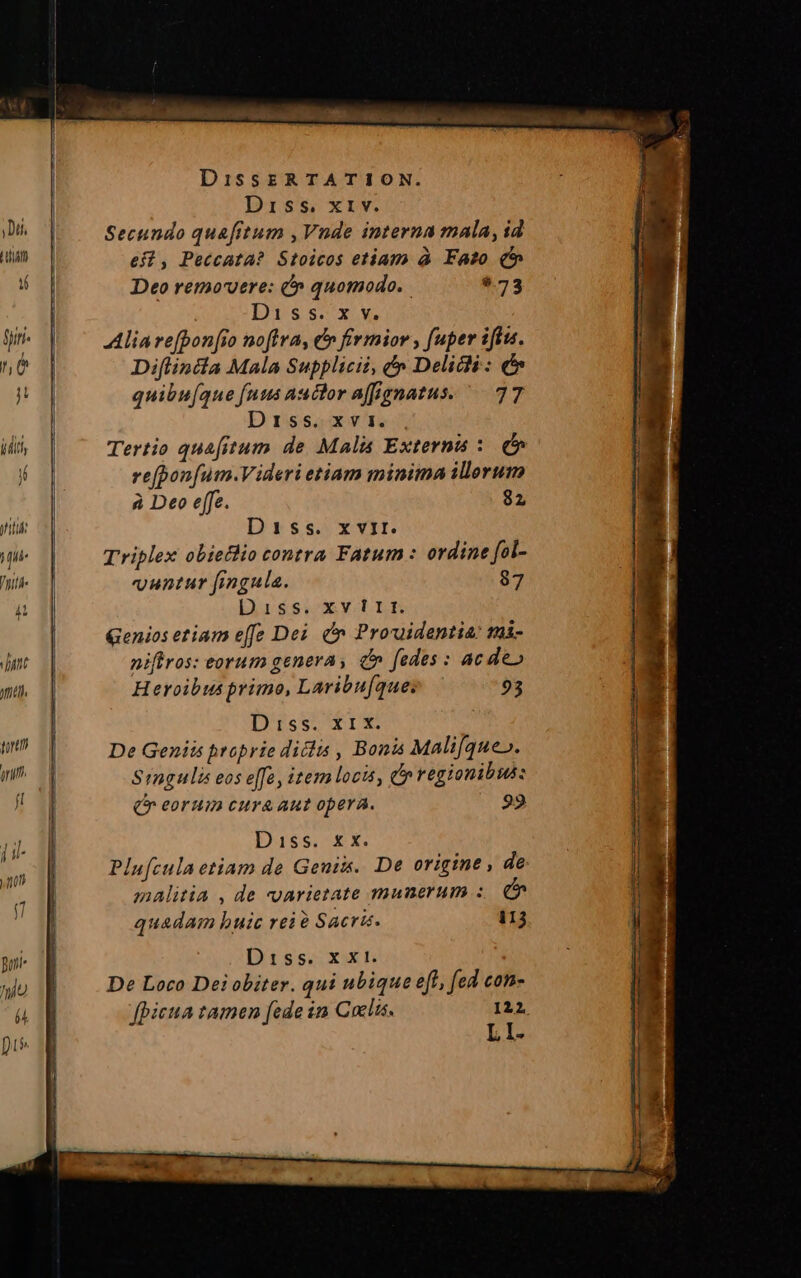 DISSERTATION.
DISS. XIV.
Secundo quæſitum, Vnde interna mala, id
eſt, Peccata? Stoicos etiam à Fato &
Deo removere: & quomodo. *73
DISS. XV.
Alia reſponſio noſtra, & firmior, ſuper iſtis.
Diſtincta Mala Supplicii, & Delicti: &
quibuſque ſuus auctor aſſignatus. 77
DISS. XVI.
Tertio quæſitum de Malis Externis: &
reſponſum. Videri etiam minima illorum
à Deo eſſe. 82
DISS. XVII.
Triplex obiectio contra Fatum: ordine ſol-
vuntur ſingulæ. 87
DISS. XVIII.
Genios etiam eſſe Dei & Providentiæ mi-
niſtros: eorum genera, & ſedes: ac de
Heroibus primo, Laribuſque. 93
DISS. XIX.
De Geniis proprie dictis, Bonis Maliſque.
Singulis eos eſſe, item locis, & regionibus:
& eorum cura aut opera. 99
DISS. XX.
Pluſcula etiam de Geniis. De origine, de
malitia, de varietate munerum: &
quædam huic rei è Sacris. 113
DISS. XXI.
De Loco Dei obiter. qui ubique eſt, ſed con-
ſpicua tamen ſede in Cœlis. 122
LI-